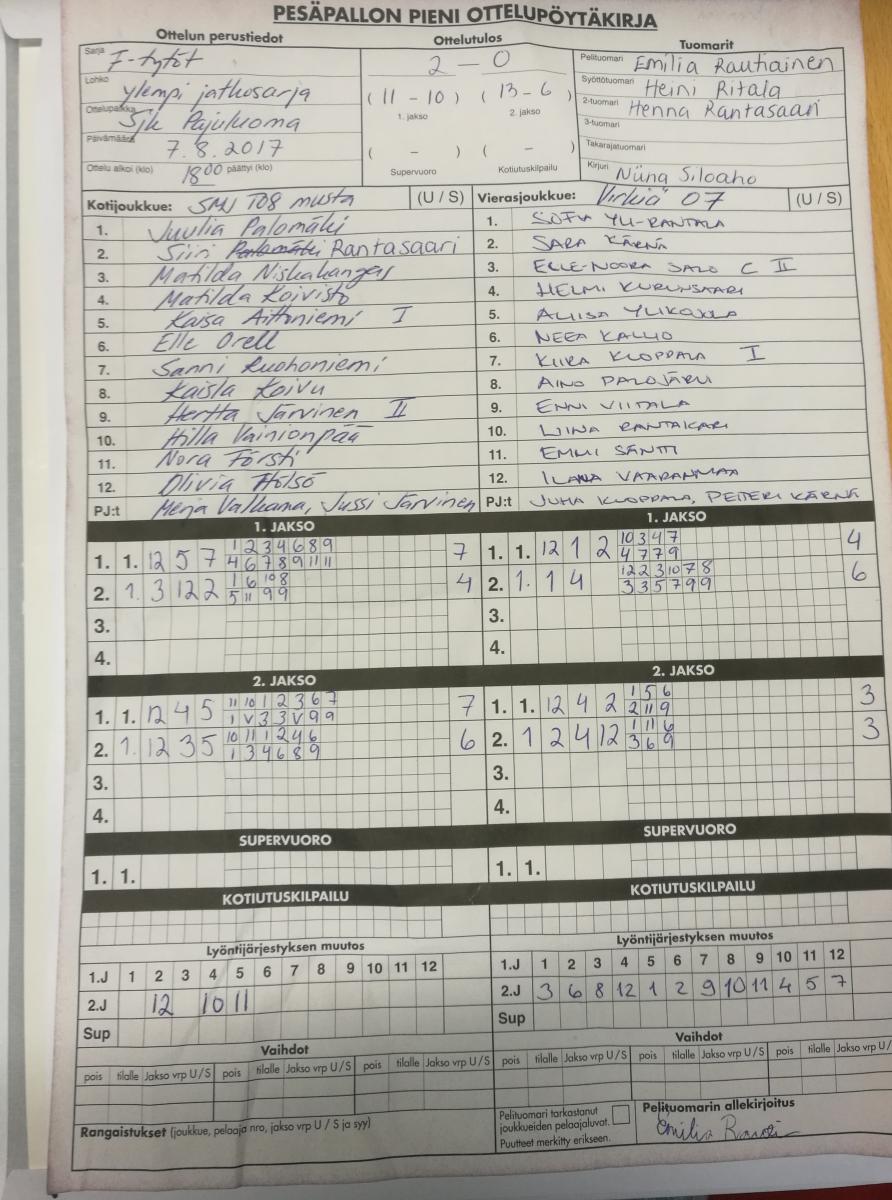 PESÄPALLON PIENI OTTELUPÖYTÄKIRJA
Ottelun perustiedot Ottelutulos Tuomarit
Sarja F-tytöt
Lohko ylempi jatkosarja
Ottelupaikka Sjk Pajuluoma
Päivämäärä 7.8.2017
Ottelu alkoi (klo) 18 00 päättyi (klo)
2 - 0
(11 - 10) (13 - 6)
1. jakso 2. jakso
( - ) ( - )
Supervuoro Kotiutuskilpailu
Pelituomari Emilia Rautiainen
Syöttötuomari Heini Ritala
2-tuomari Henna Rantasaari
3-tuomari
Takarajatuomari
Kirjuri Niina Siloaho
Kotijoukkue: SMJ T08 musta (U / S)
1. Juulia Palomäki
2. Siiri Palomäki Rantasaari
3. Matilda Niskakangas
4. Matilda Koivisto
5. Kaisa Aittoniemi I
6. Elle Orell
7. Sanni Ruohoniemi
8. Kaisla Koivu
9. Hertta Järvinen II
10. Hilla Vainionpää
11. Nora Försti
12. Olivia Hölsö
PJ:t Merja Valkama, Jussi Järvinen
Vierasjoukkue: Virkiä 07 (U / S)
1. SOFIA YLI-RANTALA
2. SARA KÄRNÄ
3. ELLE-NOORA SALO C II
4. HELMI KURUNSAARI
5. ALIISA YLIKOJOLA
6. NEEA KALLIO
7. KIIRA KLOPPALA I
8. AINO PALOJÄRVI
9. ENNI VIITALA
10. LIINA RANTAKARI
11. EMMI SÄNTTI
12. ILANA VAARANMAA
PJ:t JUHA KLOPPALA, PETTERI KÄRNÄ
1. JAKSO
1. 1. 12 5 7 1 2 3 4 6 8 9 7
4 6 7 8 9 11 11
2. 1. 3 12 2 1 6 10 8 4
5 11 9 9
3.
4.
1. JAKSO
1. 1. 12 1 2 10 3 4 7 4
4 7 7 9
2. 1. 1 4 12 2 3 10 7 8 6
3 3 5 7 9 9
3.
4.
2. JAKSO
1. 1. 12 4 5 11 10 1 2 3 6 7 7
1 V 3 3 V 9 9
2. 1. 12 3 5 10 11 1 2 4 6 6
1 3 4 6 8 9
3.
4.
2. JAKSO
1. 1. 12 4 2 1 5 6 3
2 11 9
2. 1 2 4 12 1 11 6 3
3 6 9
3.
4.
SUPERVUORO
1. 1.
SUPERVUORO
1. 1.
KOTIUTUSKILPAILU
KOTIUTUSKILPAILU
Lyöntijärjestyksen muutos
1.J 1 2 3 4 5 6 7 8 9 10 11 12
2.J 12 10 11
Sup
Lyöntijärjestyksen muutos
1.J 1 2 3 4 5 6 7 8 9 10 11 12
2.J 3 6 8 12 1 2 9 10 11 4 5 7
Sup
Vaihdot
pois tilalle Jakso vrp U/S pois tilalle Jakso vrp U/S pois tilalle Jakso vrp U/S
Vaihdot
pois tilalle Jakso vrp U/S pois tilalle Jakso vrp U/S pois tilalle Jakso vrp U/
Rangaistukset (joukkue, pelaaja nro, jakso vrp U / S ja syy)
Pelituomari tarkastanut
joukkueiden pelaajaluvat.
Puutteet merkitty erikseen.
Pelituomarin allekirjoitus
Emilia